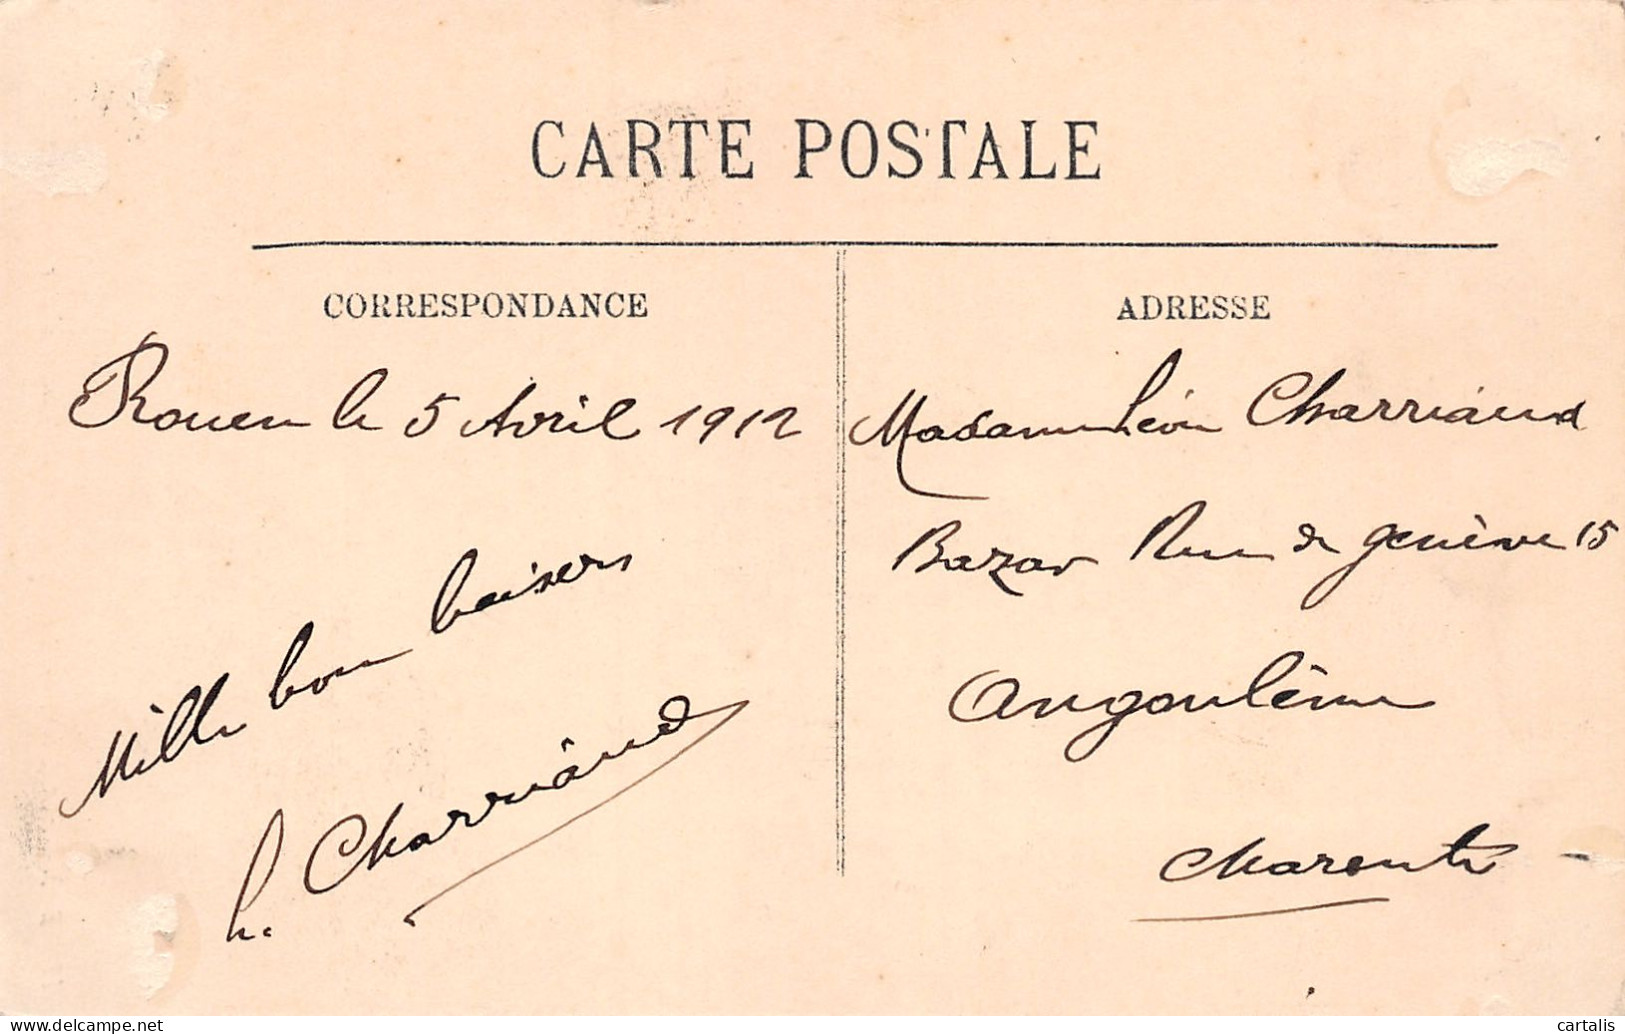 CARTE POSTALE
CORRESPONDANCE
Rouen le 5 Avril 1912
Mille bon baisers
L. Charriaud
ADRESSE
Madame Léon Charriaud
Bazar Rue de genève 15
Angoulême
Charente
www.delcampe.net
cartalis